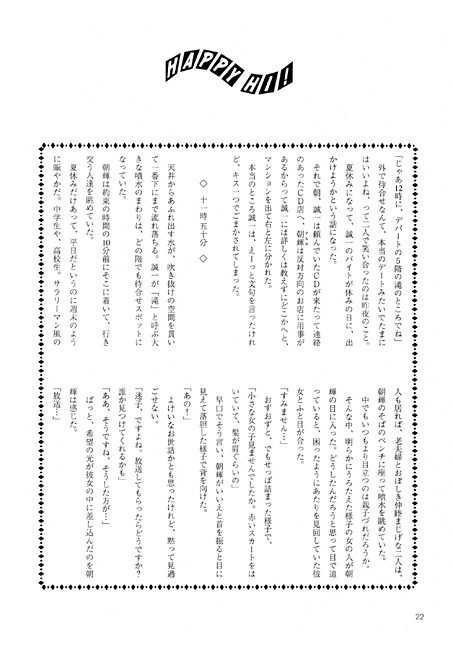 HAPPY HI!
「じゃあ12時に、デパートの5階の滝のところでね」
外で待合せなんて、本当のデートみたいでたまに
はいいよね、って二人で笑い合ったのは昨夜のこと。
夏休みになって、誠一のバイトが休みの日に、出
かけようかという話になった。
それで朝、誠一は頼んでいたCDが来たって連絡
のあったCD店へ、朝輝は反対方向のお店に用事が
あるからって誠一には詳しくは教えずにどこかへと、
マンションを出て右と左に分かれた。
本当のところ誠一は、えーっと文句を言ったけれ
ど、キス一つでごまかされてしまった。
◇ 十一時五十分 ◇
天井からあふれ出す水が、吹き抜けの空間を貫い
て一番下にまで流れ落ちる。誠一が「滝」と呼ぶ大
きな噴水のまわりは、どの階でも待合せスポットに
なっていた。
朝輝は約束の時間の10分前にそこに着いて、行き
交う人達を眺めていた。
夏休みだけあって、平日だというのに週末のよう
に賑やかだ。中学生や、高校生。サラリーマン風の
人も居れば、老夫婦とおぼしき仲睦まじげな二人は、
朝輝のそばのベンチに座って噴水を眺めていた。
中でもいつもより目立つのは親子づれだろうか。
そんな中、明らかにうろたえた様子の女の人が朝
輝の目に入った。どうしたんだろうと思って目で追
っていると、困ったようにあたりを見回していた彼
女とふと目が合った。
「すみません…」
おずおずと、でもせっぱ詰まった様子で、
「小さな女の子見ませんでしたか。赤いスカートをは
いていて、髪が肩くらいの」
早口でそう言い、朝輝がいいえと首を振ると目に
見えて落胆した様子で背を向けた。
「あの！」
よけいなお世話かとも思ったけれど、黙って見過
ごせない。
「迷子、ですよね。放送してもらったらどうですか？
誰か見つけてくれるかも」
「ああ、そうですね、そうした方が…」
ぱっと、希望の光が彼女の中に差し込んだのを朝
輝は感じた。
「放送…」
22